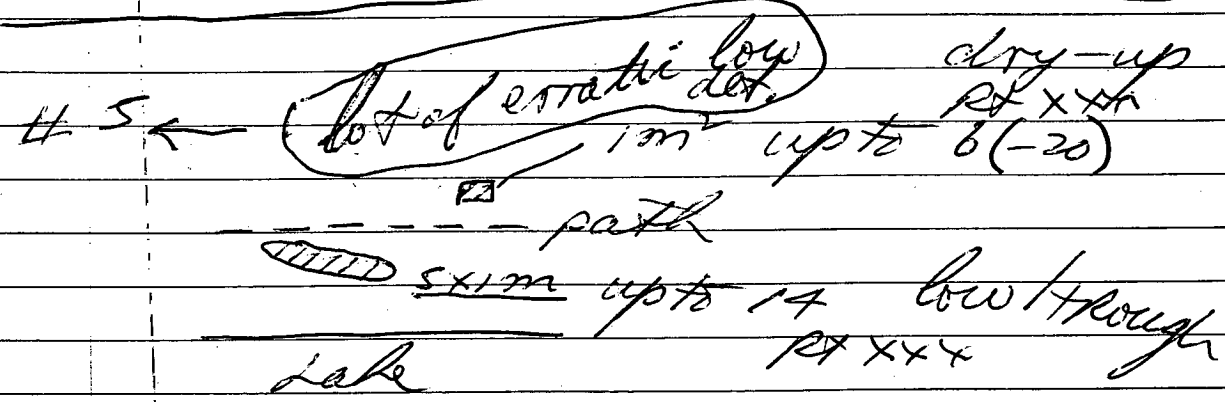 lot of erratic low det.
dry-up
pt xxx
# 5
1m² up to 6(-20)
path
5x1m up to 14 low/trough
pt xxx
Lake